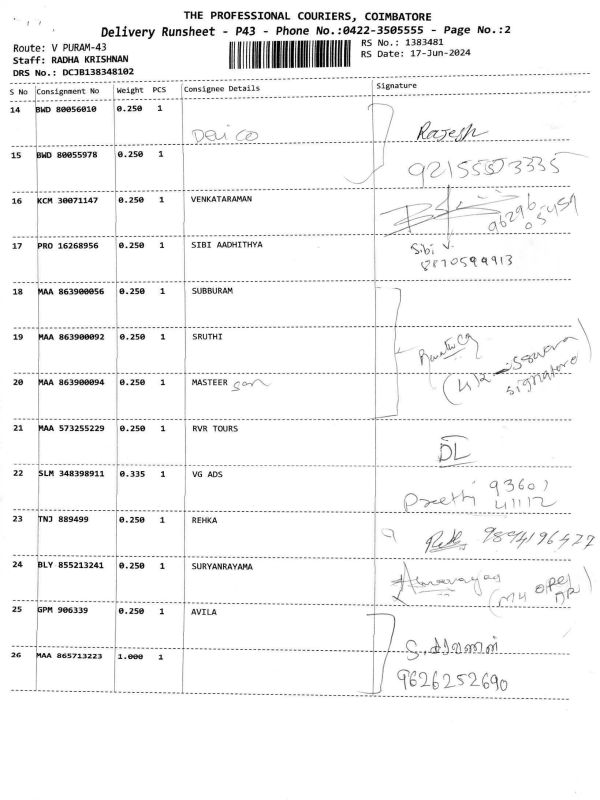 THE PROFESSIONAL COURIERS, COIMBATORE
Delivery Runsheet - P43 - Phone No.:0422-3505555 - Page No.:2
Route: V PURAM-43
RS No.: 1383481
Staff: RADHA KRISHNAN
RS Date: 17-Jun-2024
DRS No.: DCJB138348102
S No Consignment No Weight PCS Consignee Details Signature
14 BWD 80056010 0.250 1
Rajesh
15 BWD 80055978 0.250 1
16 KCM 30071147 0.250 1 VENKATARAMAN
96296
05459
17 PRO 16268956 0.250 1 SIBI AADHITHYA
Sibi V.
8870599913
18 MAA 863900056 0.250 1 SUBBURAM
19 MAA 863900092 0.250 1 SRUTHI
signature
20 MAA 863900094 0.250 1 MASTEER San
21 MAA 573255229 0.250 1 RVR TOURS
DL
22 SLM 348398911 0.335 1 VG ADS
Preethi 93607
41112
23 TNJ 889499 0.250 1 REHKA
24 BLY 855213241 0.250 1 SURYANRAYAMA
25 GPM 906339 0.250 1 AVILA
26 MAA 865713223 1.000 1
9626252690